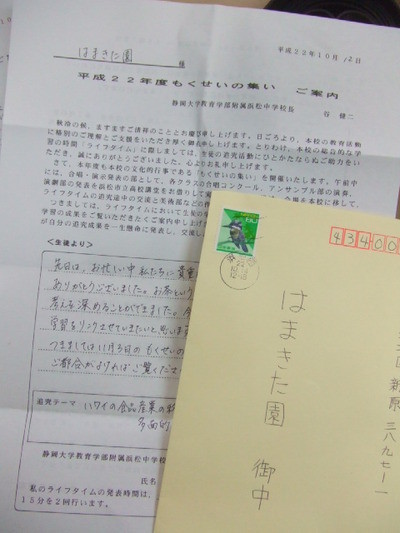 はまきた園 様
平成22年10月12日
平成22年度もくせいの集い ご案内
静岡大学教育学部附属浜松中学校長
谷 健二
秋冷の候、ますますご清祥のこととお慶び申し上げます。日ごろより、本校の教育活動
に格別のご理解とご支援をいただき厚く御礼申し上げます。とりわけ、本校の総合的な学
習の時間「ライフタイム」に際しましては、生徒の追究活動にひとかたならぬご助力をい
ただき、誠にありがとうございました。心よりお礼申し上げます。
さて、本年度も本校の文化的行事である「もくせいの集い」を開催いたします。午前中
には、合唱・演示発表の部として、各クラスの合唱コンクール、アンサンブル部の演奏、
演劇部の発表を浜松市立高校講堂をお借りして
ライフタイムの追究途中の交流と美術部などの作
つきましては、ライフタイムにおいて生徒の
学習の成果をご覧いただきたくご案内申し上げ
が自分の追究成果を一生懸命に発表し、交流し
<生徒より>
先日は、お忙しい中 私たちに貴重
ありがとうございました。お茶という
考えを深めることができました。
学習をリンクさせていきたいと思います
つきましては11月3日の もくせいの
ご都合がよければ ご覧くださ
追究テーマ ハワイの食品産業の
多面的
静岡大学教育学部附属浜松中学校
氏名
私のライフタイムの発表時間は、
15分を2回行います。
43400
新原 三八九七ー一
はまきた園 御中